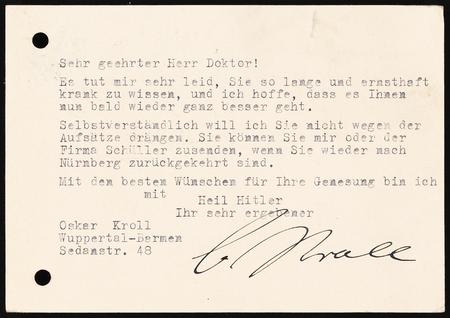 Sehr geehrter Herr Doktor!
Es tut mir sehr leid, Sie so lange und ernsthaft
krank zu wissen, und ich hoffe, dass es Ihnen
nun bald wieder ganz besser geht.
Selbstverständlich will ich Sie nicht wegen der
Aufsätze drängen. Sie können Sie mir oder der
Firma Schüller zusenden, wenn Sie wieder nach
Nürnberg zurückgekehrt sind.
Mit den besten Wünschen für Ihre Genesung bin ich
mit
Heil Hitler
Ihr sehr ergebener
Oskar Kroll
Wuppertal-Barmen
Sedanstr. 48
O. Kroll